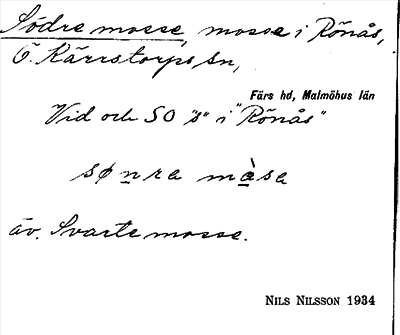 Södre mosse, mosse i Rönås,
Ö. Kärrstorps sn,
Färs hd, Malmöhus län
Vid och SO "s" i "Rönås"
sønra màsa
äv. Svarte mosse.
NILS NILSSON 1934